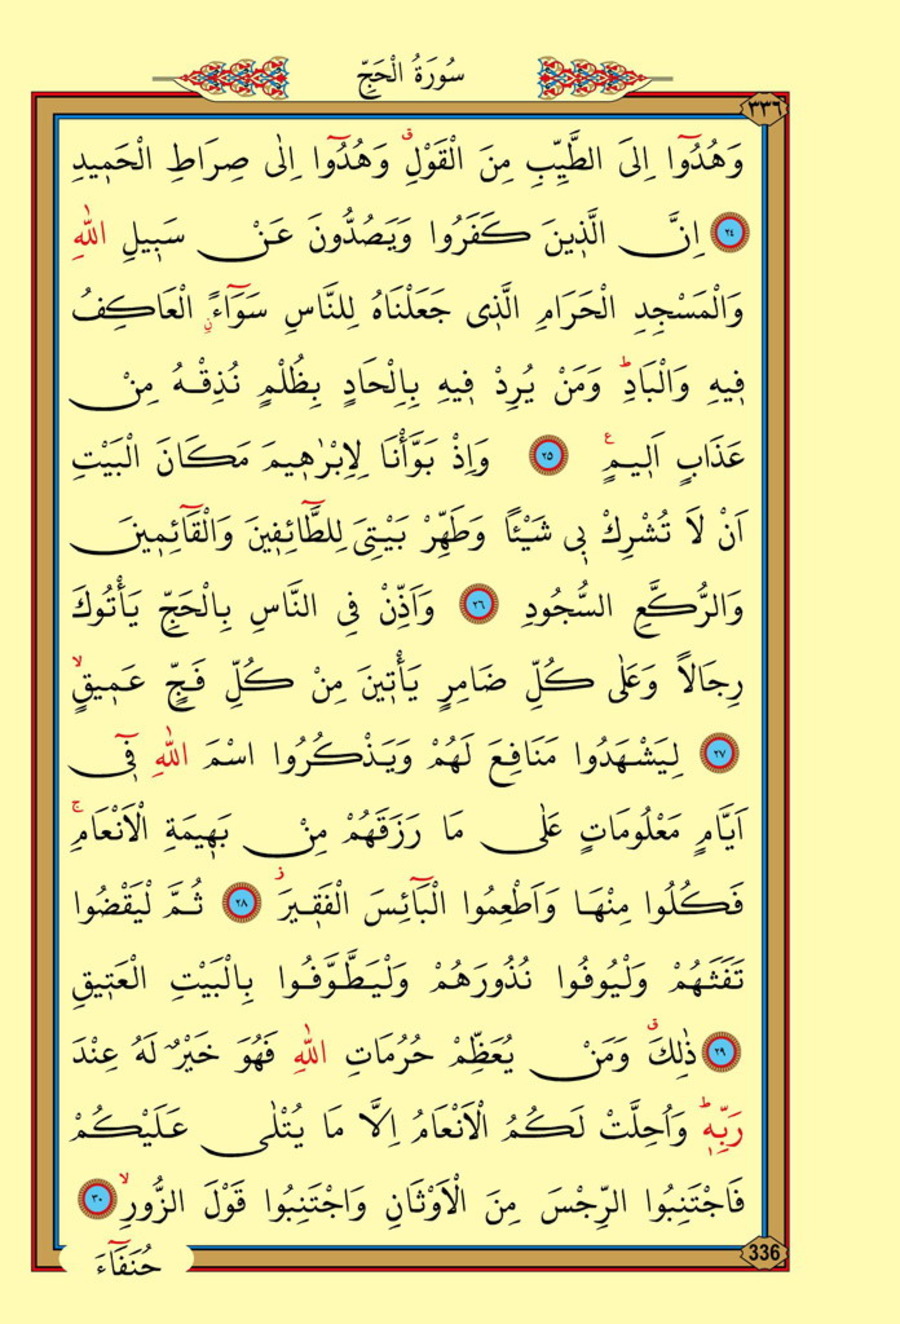 سُورَةُ الْحَجِّ
٣٣٦
وَهُدُٓوا اِلَى الطَّيِّبِ مِنَ الْقَوْلِۗ وَهُدُٓوا اِلٰى صِرَاطِ الْحَم۪يدِ
٢٤ اِنَّ الَّذ۪ينَ كَفَرُوا وَيَصُدُّونَ عَنْ سَب۪يلِ اللّٰهِ
وَالْمَسْجِدِ الْحَرَامِ الَّذ۪ى جَعَلْنَاهُ لِلنَّاسِ سَوَٓاءًۨ الْعَاكِفُ
ف۪يهِ وَالْبَادِؕ وَمَنْ يُرِدْ ف۪يهِ بِاِلْحَادٍ بِظُلْمٍ نُذِقْهُ مِنْ
عَذَابٍ اَل۪يمٍ ع ٢٥ وَاِذْ بَوَّأْنَا لِاِبْرٰه۪يمَ مَكَانَ الْبَيْتِ
اَنْ لَا تُشْرِكْ ب۪ى شَيْئًا وَطَهِّرْ بَيْتِىَ لِلطَّٓائِف۪ينَ وَالْقَٓائِم۪ينَ
وَالرُّكَّعِ السُّجُودِ ٢٦ وَاَذِّنْ فِى النَّاسِ بِالْحَجِّ يَأْتُوكَ
رِجَالًا وَعَلٰى كُلِّ ضَامِرٍ يَأْت۪ينَ مِنْ كُلِّ فَجٍّ عَم۪يقٍۙ
٢٧ لِيَشْهَدُوا مَنَافِعَ لَهُمْ وَيَذْكُرُوا اسْمَ اللّٰهِ ف۪ٓى
اَيَّامٍ مَعْلُومَاتٍ عَلٰى مَا رَزَقَهُمْ مِنْ بَه۪يمَةِ الْاَنْعَامِۚ
فَكُلُوا مِنْهَا وَاَطْعِمُوا الْبَٓائِسَ الْفَق۪يرَ ز ٢٨ ثُمَّ لْيَقْضُوا
تَفَثَهُمْ وَلْيُوفُوا نُذُورَهُمْ وَلْيَطَّوَّفُوا بِالْبَيْتِ الْعَت۪يقِ
٢٩ ذٰلِكَۗ وَمَنْ يُعَظِّمْ حُرُمَاتِ اللّٰهِ فَهُوَ خَيْرٌ لَهُ عِنْدَ
رَبِّه۪ؕ وَاُحِلَّتْ لَكُمُ الْاَنْعَامُ اِلَّا مَا يُتْلٰى عَلَيْكُمْ
فَاجْتَنِبُوا الرِّجْسَ مِنَ الْاَوْثَانِ وَاجْتَنِبُوا قَوْلَ الزُّورِۙ ٣٠
336
حُنَفَٓاءَ